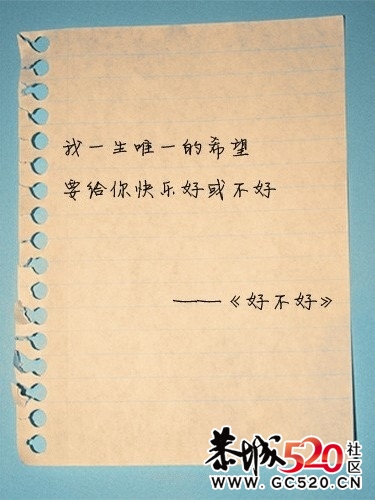 我一生唯一的希望
要给你快乐好或不好
——《好不好》
恭城520社区
WWW.GC520.CN